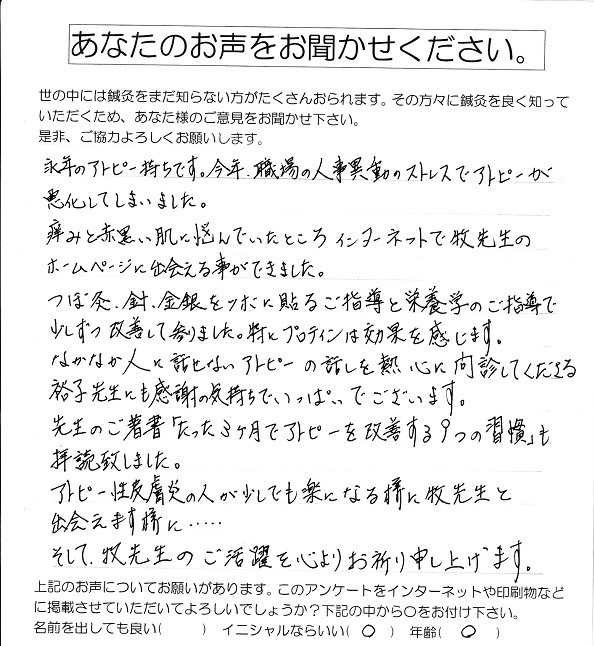 あなたのお声をお聞かせください。
世の中には鍼灸をまだ知らない方がたくさんおられます。その方々に鍼灸を良く知って
いただくため、あなた様のご意見をお聞かせ下さい。
是非、ご協力よろしくお願いします。
永年のアトピー持ちです。今年、職場の人事異動のストレスでアトピーが
悪化してしまいました。
痒みと赤黒い肌に悩んでいたところインターネットで牧先生の
ホームページに出会える事ができました。
つぼ灸、針、金銀をツボに貼るご指導と栄養学のご指導で
少しずつ改善して参りました。特にプロテインは効果を感じます。
なかなか人に話せないアトピーの話しを熱心に問診してくださる
裕子先生にも感謝の気持ちでいっぱいでございます。
先生のご著書「たった3ヶ月でアトピーを改善する9つの習慣」も
拝読致しました。
アトピー性皮膚炎の人が少しでも楽になる様に牧先生と
出会えます様に……
そして、牧先生のご活躍を心よりお祈り申し上げます。
上記のお声についてお願いがあります。このアンケートをインターネットや印刷物など
に掲載させていただいてよろしいでしょうか?下記の中から○をお付け下さい。
名前を出しても良い( ) イニシャルならいい( ○ ) 年齢( ○ )